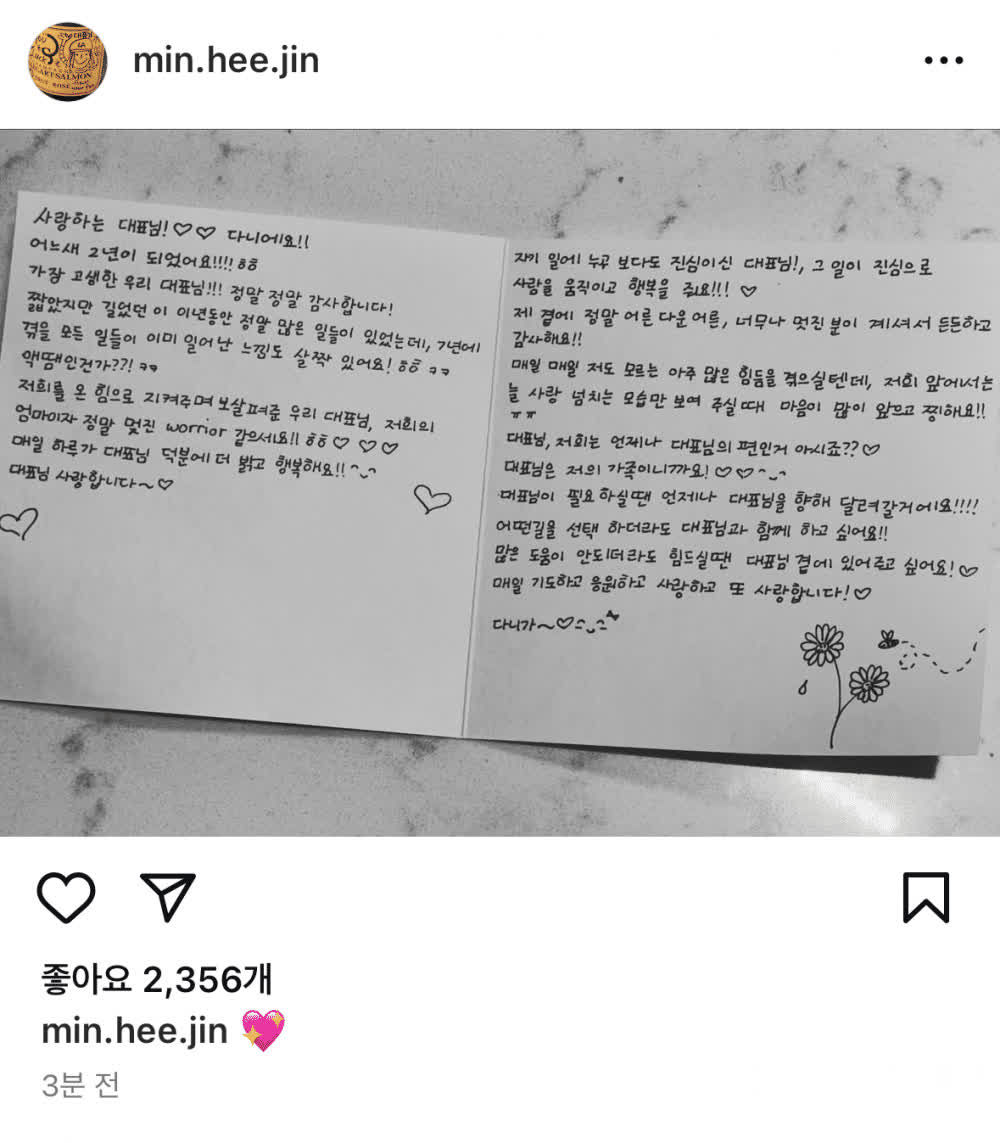 min.hee.jin
사랑하는 대표님!♡♡ 다니에요!!
어느새 2년이 되었어요!!!! ㅎㅎ
가장 고생한 우리 대표님!!! 정말 정말 감사합니다!
짧았지만 길었던 이 이년동안 정말 많은 일들이 있었는데, 7년에
겪을 모든 일들이 이미 일어난 느낌도 살짝 있어요! ㅎㅎ ㅋㅋ
액땜인건가??! ㅋㅋ
저희를 온 힘으로 지켜주며 보살펴준 우리 대표님, 저희의
엄마이자 정말 멋진 worrior 같으세요!! ㅎㅎ♡ ♡♡
매일 하루가 대표님 덕분에 더 밝고 행복해요!! ^‿^
대표님 사랑합니다~♡
자기 일에 누구 보다도 진심이신 대표님!, 그 일이 진심으로
사랑을 움직이고 행복을 줘요!!! ♡
제 곁에 정말 어른 다운 어른, 너무나 멋진 분이 계셔서 든든하고
감사해요!!
매일 매일 저도 모르는 아주 많은 힘듦을 겪으실텐데, 저희 앞에서는
늘 사랑 넘치는 모습만 보여 주실때 마음이 많이 앞으고 찡해요!!
ㅠㅠ
대표님, 저희는 언제나 대표님의 편인거 아시죠??♡
대표님은 저의 가족이니까요! ♡♡ ^‿^
대표님이 필요하실땐 언제나 대표님을 향해 달려갈거에요!!!!
어떤길을 선택 하더라도 대표님과 함께 하고 싶어요!!
많은 도움이 안되더라도 힘드실땐 대표님 곁에 있어주고 싶어요!♡
매일 기도하고 응원하고 사랑하고 또 사랑합니다!♡
다니가~♡
좋아요 2,356개
min.hee.jin 💖
3분 전